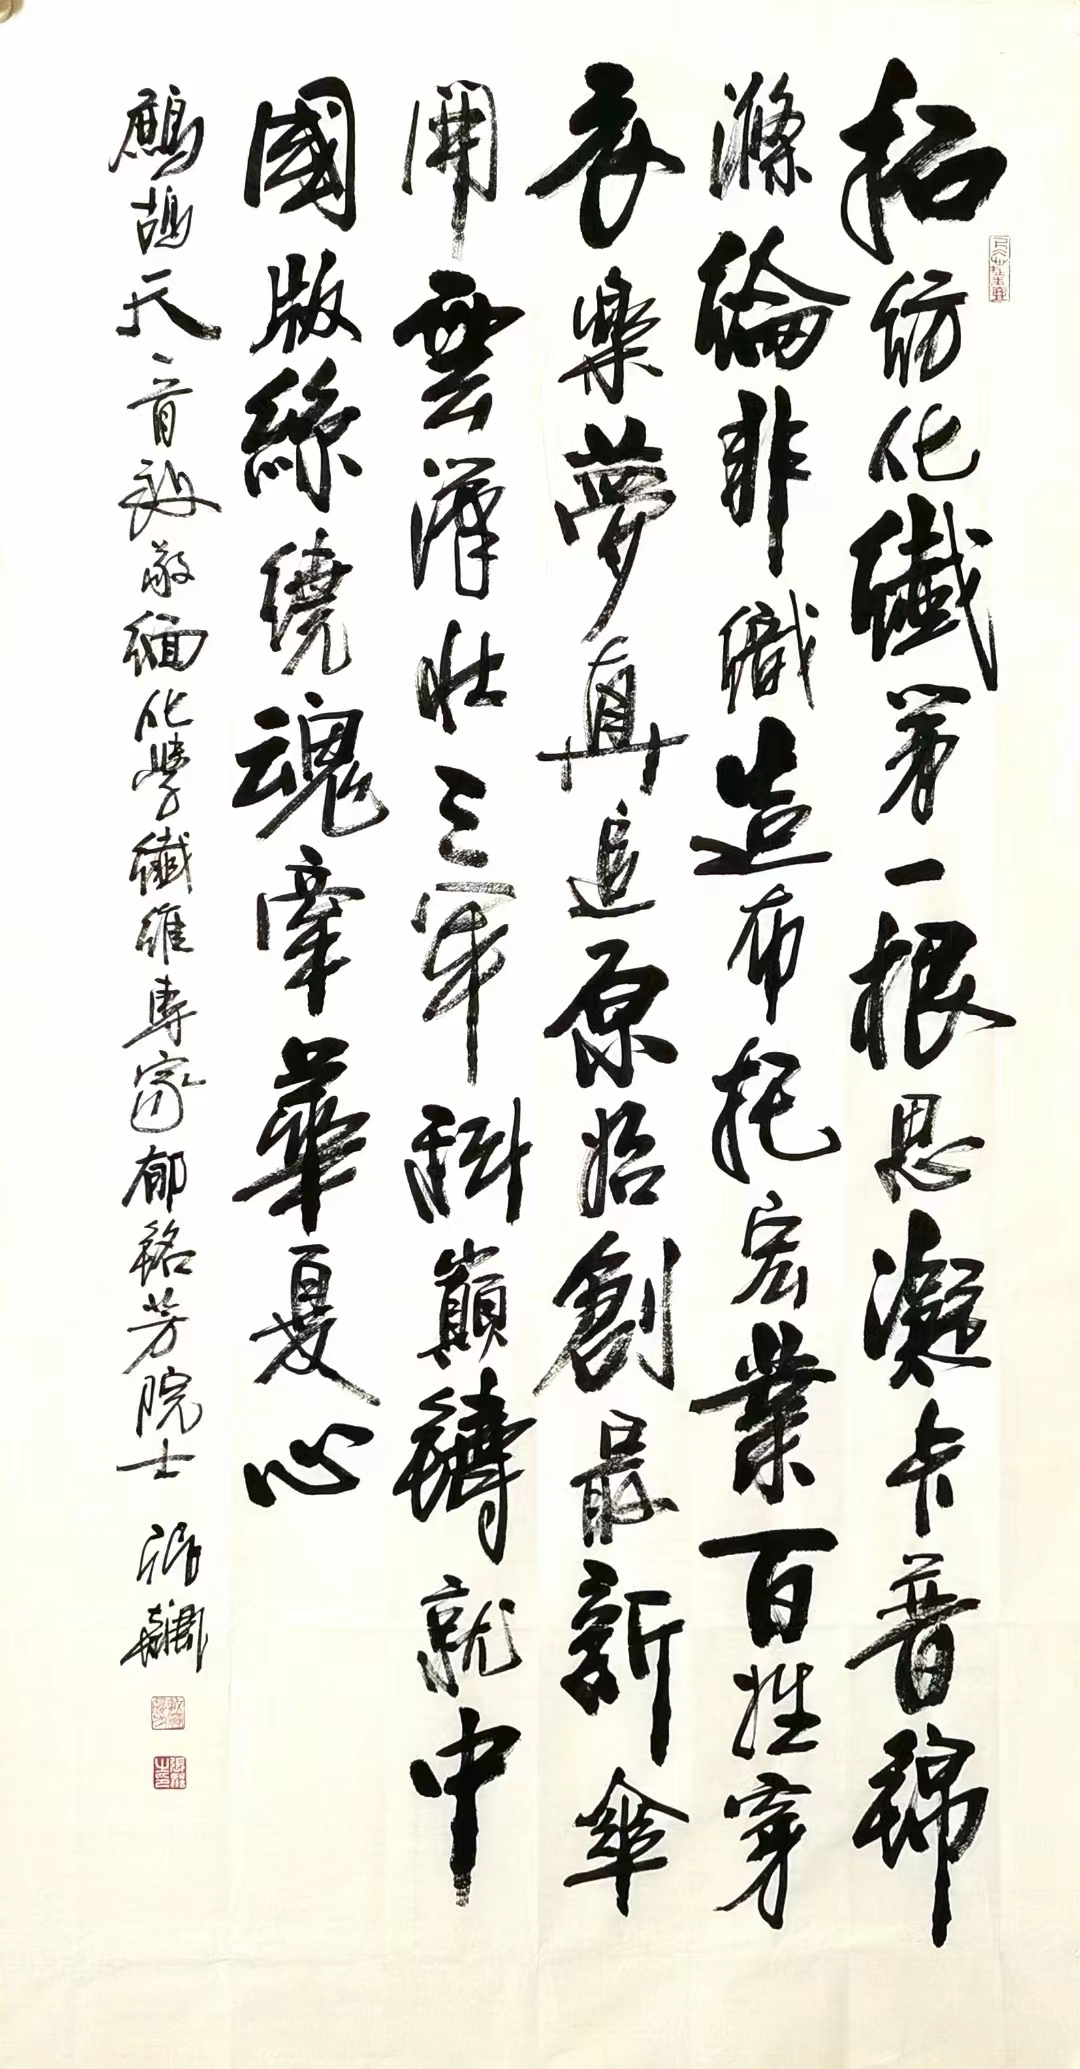 拓紡化纖第一根思凝卡普錦
滌綸非織造布托宏業百姓穿
衣樂夢真追原始創最新傘
開雲漢壯三軍科巔鑄就中
國版絲繞魂牽華夏心
鷓鴣天一首敬緬化學纖維專家郁銘芳院士